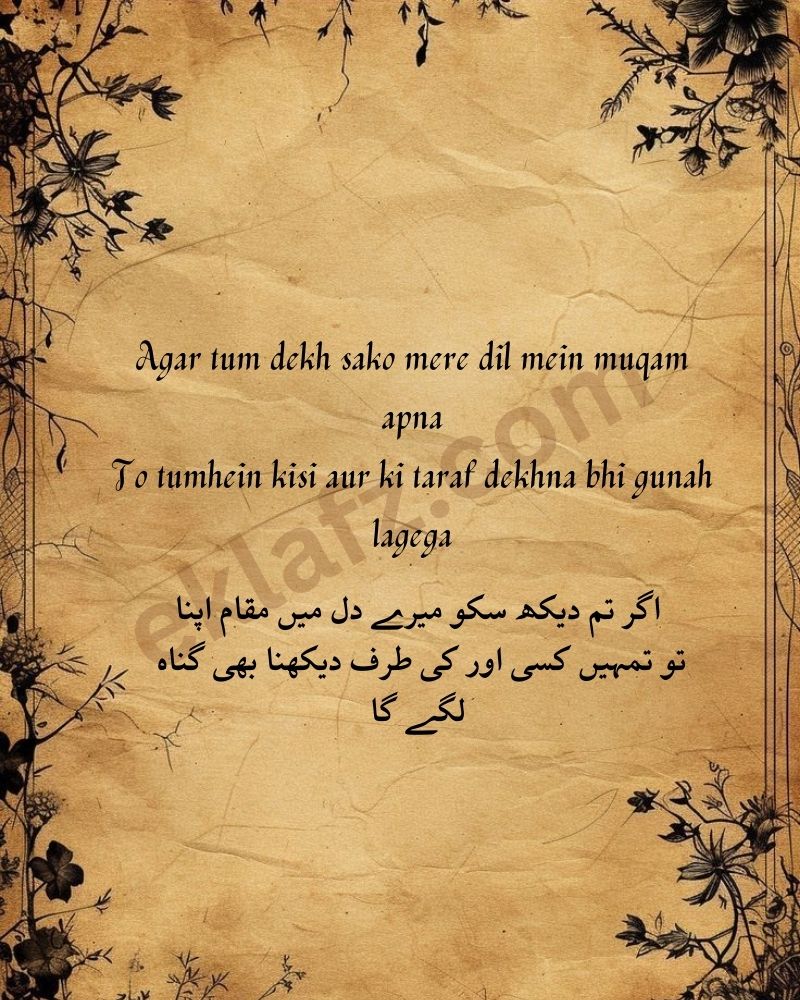 Agar tum dekh sako mere dil mein muqam
apna
To tumhein kisi aur ki taraf dekhna bhi gunah
lagega
اگر تم دیکھ سکو میرے دل میں مقام اپنا
تو تمہیں کسی اور کی طرف دیکھنا بھی گناہ
لگے گا
eklafz.com